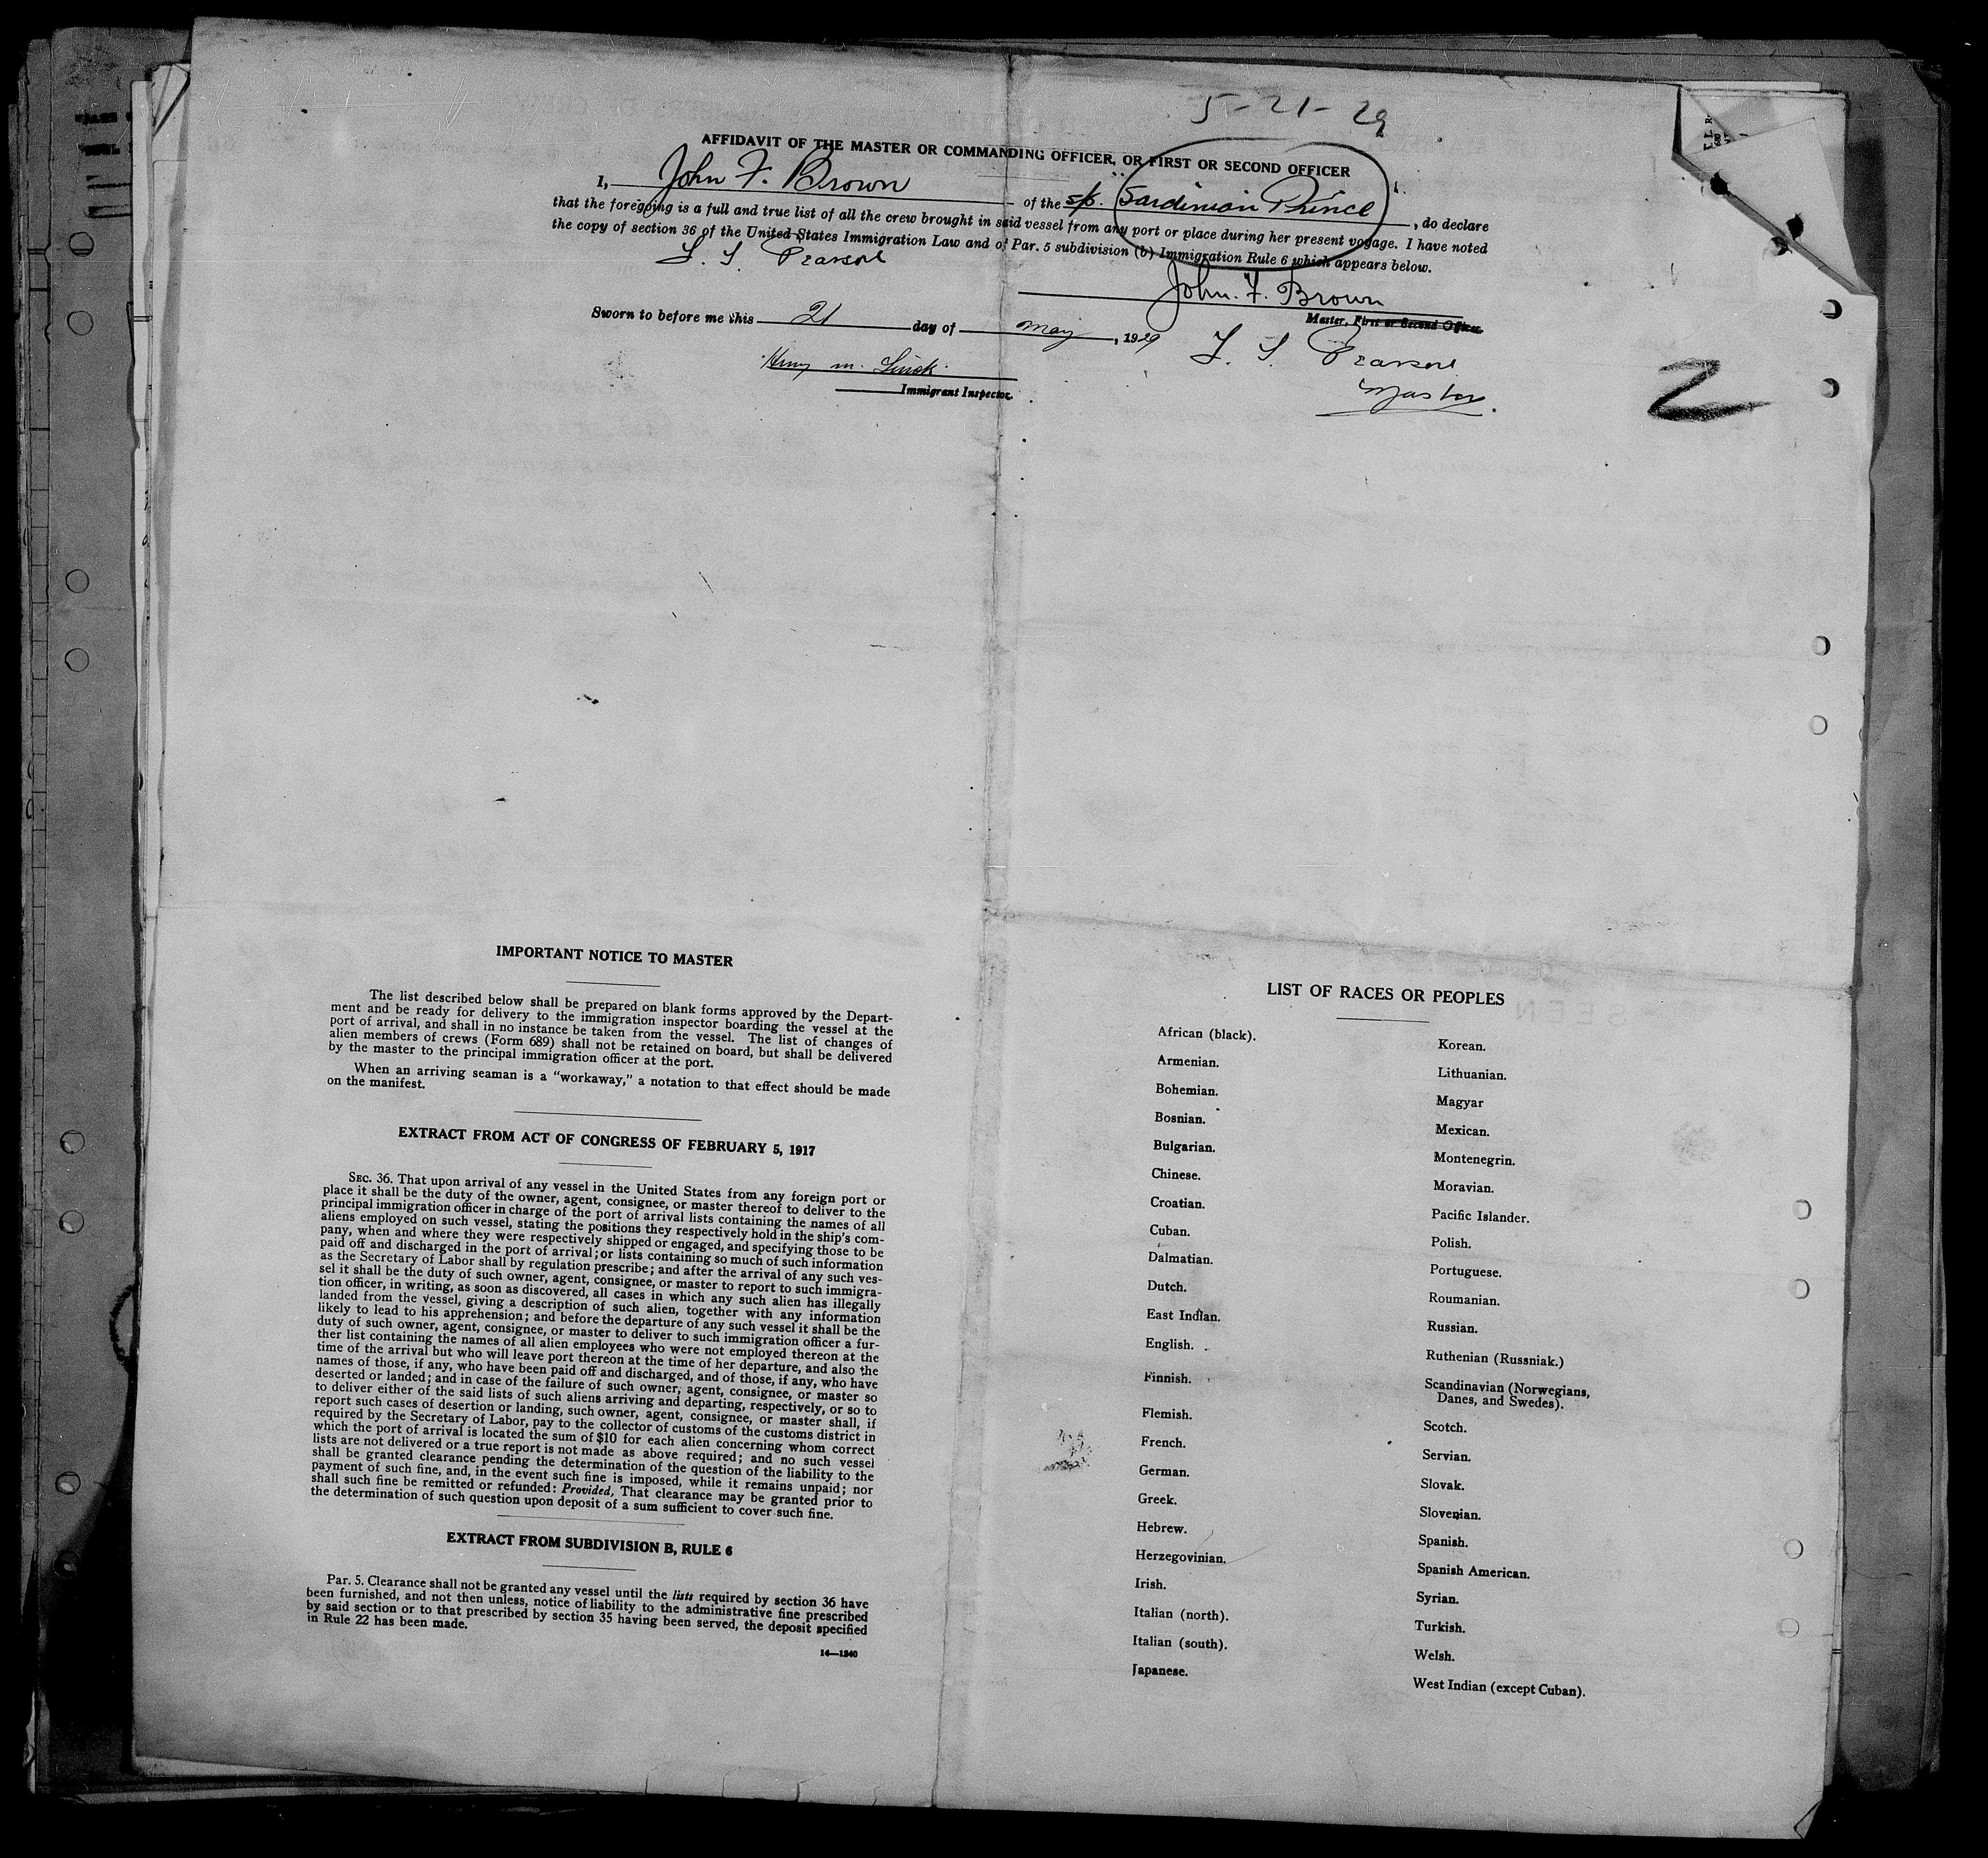 5-21-29
AFFIDAVIT OF THE MASTER OR COMMANDING OFFICER, OR FIRST OR SECOND OFFICER
I, John F. Brown of the s/s. "Sardinian Prince", do declare
that the foregoing is a full and true list of all the crew brought in said vessel from any port or place during her present voyage. I have noted
the copy of section 36 of the United States Immigration Law and of Par. 5 subdivision (b) Immigration Rule 6 which appears below.
John. F. Brown
Master, First or Second Officer.
Sworn to before me this 21 day of May, 1929
Master
m.
Immigrant Inspector.
2
IMPORTANT NOTICE TO MASTER
The list described below shall be prepared on blank forms approved by the Depart-
ment and be ready for delivery to the immigration inspector boarding the vessel at the
port of arrival, and shall in no instance be taken from the vessel. The list of changes of
alien members of crews (Form 689) shall not be retained on board, but shall be delivered
by the master to the principal immigration officer at the port.
When an arriving seaman is a "workaway," a notation to that effect should be made
on the manifest.
EXTRACT FROM ACT OF CONGRESS OF FEBRUARY 5, 1917
SEC. 36. That upon arrival of any vessel in the United States from any foreign port or
place it shall be the duty of the owner, agent, consignee, or master thereof to deliver to the
principal immigration officer in charge of the port of arrival lists containing the names of all
aliens employed on such vessel, stating the positions they respectively hold in the ship's com-
pany, when and where they were respectively shipped or engaged, and specifying those to be
paid off and discharged in the port of arrival; or lists containing so much of such information
as the Secretary of Labor shall by regulation prescribe; and after the arrival of any such ves-
sel it shall be the duty of such owner, agent, consignee, or master to report to such immigra-
tion officer, in writing, as soon as discovered, all cases in which any such alien has illegally
landed from the vessel, giving a description of such alien, together with any information
likely to lead to his apprehension; and before the departure of any such vessel it shall be the
duty of such owner, agent, consignee, or master to deliver to such immigration officer a fur-
ther list containing the names of all alien employees who were not employed thereon at the
time of the arrival but who will leave port thereon at the time of her departure, and also the
names of those, if any, who have been paid off and discharged, and of those, if any, who have
deserted or landed; and in case of the failure of such owner, agent, consignee, or master so
to deliver either of the said lists of such aliens arriving and departing, respectively, or so to
report such cases of desertion or landing, such owner, agent, consignee, or master shall, if
required by the Secretary of Labor, pay to the collector of customs of the customs district in
which the port of arrival is located the sum of $10 for each alien concerning whom correct
lists are not delivered or a true report is not made as above required; and no such vessel
shall be granted clearance pending the determination of the question of the liability to the
payment of such fine, and, in the event such fine is imposed, while it remains unpaid; nor
shall such fine be remitted or refunded: Provided, That clearance may be granted prior to
the determination of such question upon deposit of a sum sufficient to cover such fine.
EXTRACT FROM SUBDIVISION B, RULE 6
Par. 5. Clearance shall not be granted any vessel until the lists required by section 36 have
been furnished, and not then unless, notice of liability to the administrative fine prescribed
by said section or to that prescribed by section 35 having been served, the deposit specified
in Rule 22 has been made.
14—1240
LIST OF RACES OR PEOPLES
African (black).
Armenian.
Bohemian.
Bosnian.
Bulgarian.
Chinese.
Croatian.
Cuban.
Dalmatian.
Dutch.
East Indian.
English.
Finnish.
Flemish.
French.
German.
Greek.
Hebrew.
Herzegovinian.
Irish.
Italian (north).
Italian (south).
Japanese.
Korean.
Lithuanian.
Magyar
Mexican.
Montenegrin.
Moravian.
Pacific Islander.
Polish.
Portuguese.
Roumanian.
Russian.
Ruthenian (Russniak.)
Scandinavian (Norwegians,
Danes, and Swedes).
Scotch.
Servian.
Slovak.
Slovenian.
Spanish.
Spanish American.
Syrian.
Turkish.
Welsh.
West Indian (except Cuban).